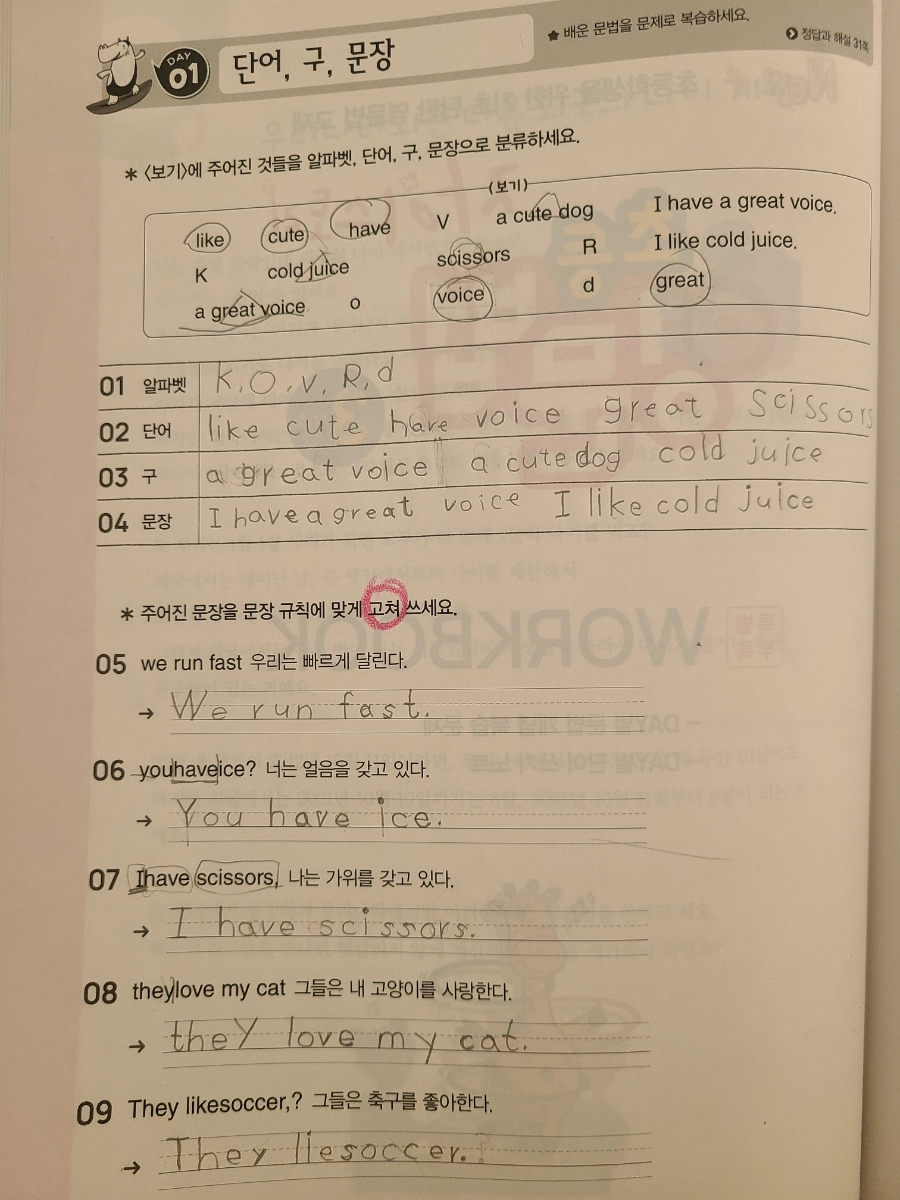 ★ 배운 문법을 문제로 복습하세요.
DAY 01 단어, 구, 문장
정답과 해설 31쪽
* 〈보기〉에 주어진 것들을 알파벳, 단어, 구, 문장으로 분류하세요.
〈보기〉
like cute have V a cute dog I have a great voice.
K cold juice scissors R I like cold juice.
a great voice o voice d great
01 알파벳 K, O, V, R, d
02 단어 like cute have voice great scissors
03 구 a great voice a cute dog cold juice
04 문장 I have a great voice I like cold juice
* 주어진 문장을 문장 규칙에 맞게 고쳐 쓰세요.
05 we run fast 우리는 빠르게 달린다.
→ We run fast.
06 youhaveice? 너는 얼음을 갖고 있다.
→ You have ice.
07 Ihave scissors, 나는 가위를 갖고 있다.
→ I have scissors.
08 theylove my cat 그들은 내 고양이를 사랑한다.
→ theY love my cat.
09 They likesoccer,? 그들은 축구를 좋아한다.
→ They liesoccer.